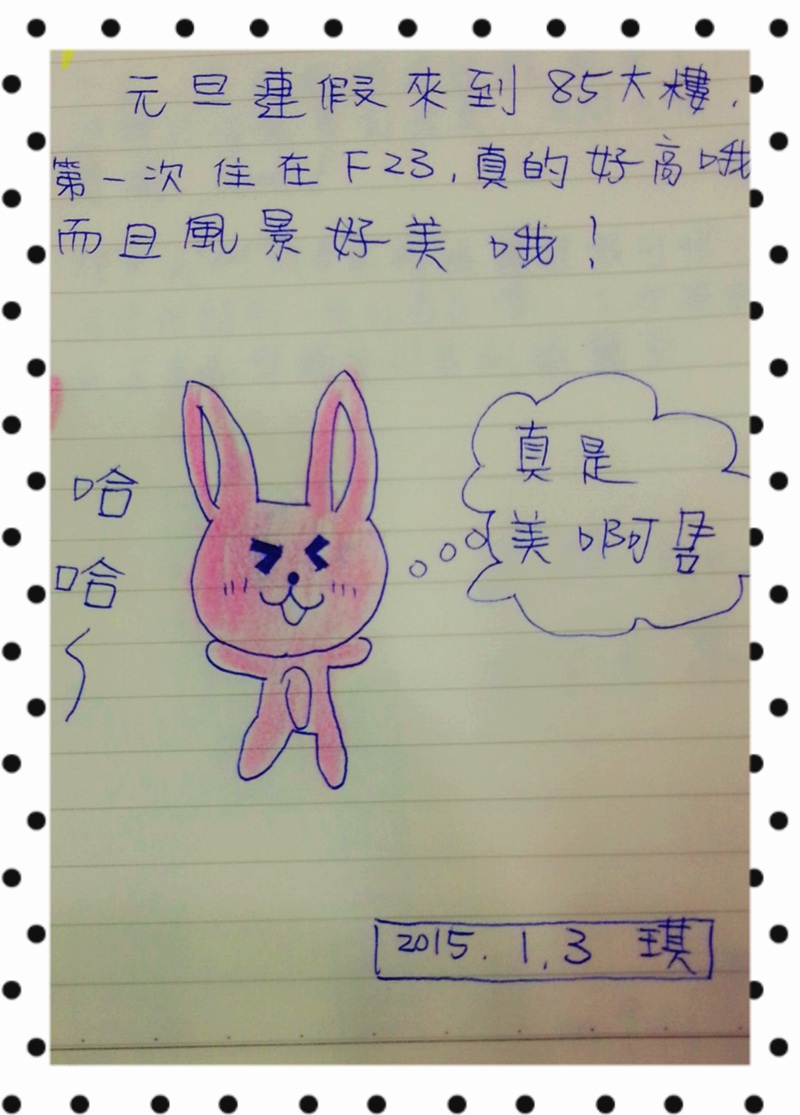 元旦連假來到 85大樓.
第一次住在 F23,真的好高哦
而且風景好美哦!
哈
哈
~
真是
美啊
2015.1.3 琪